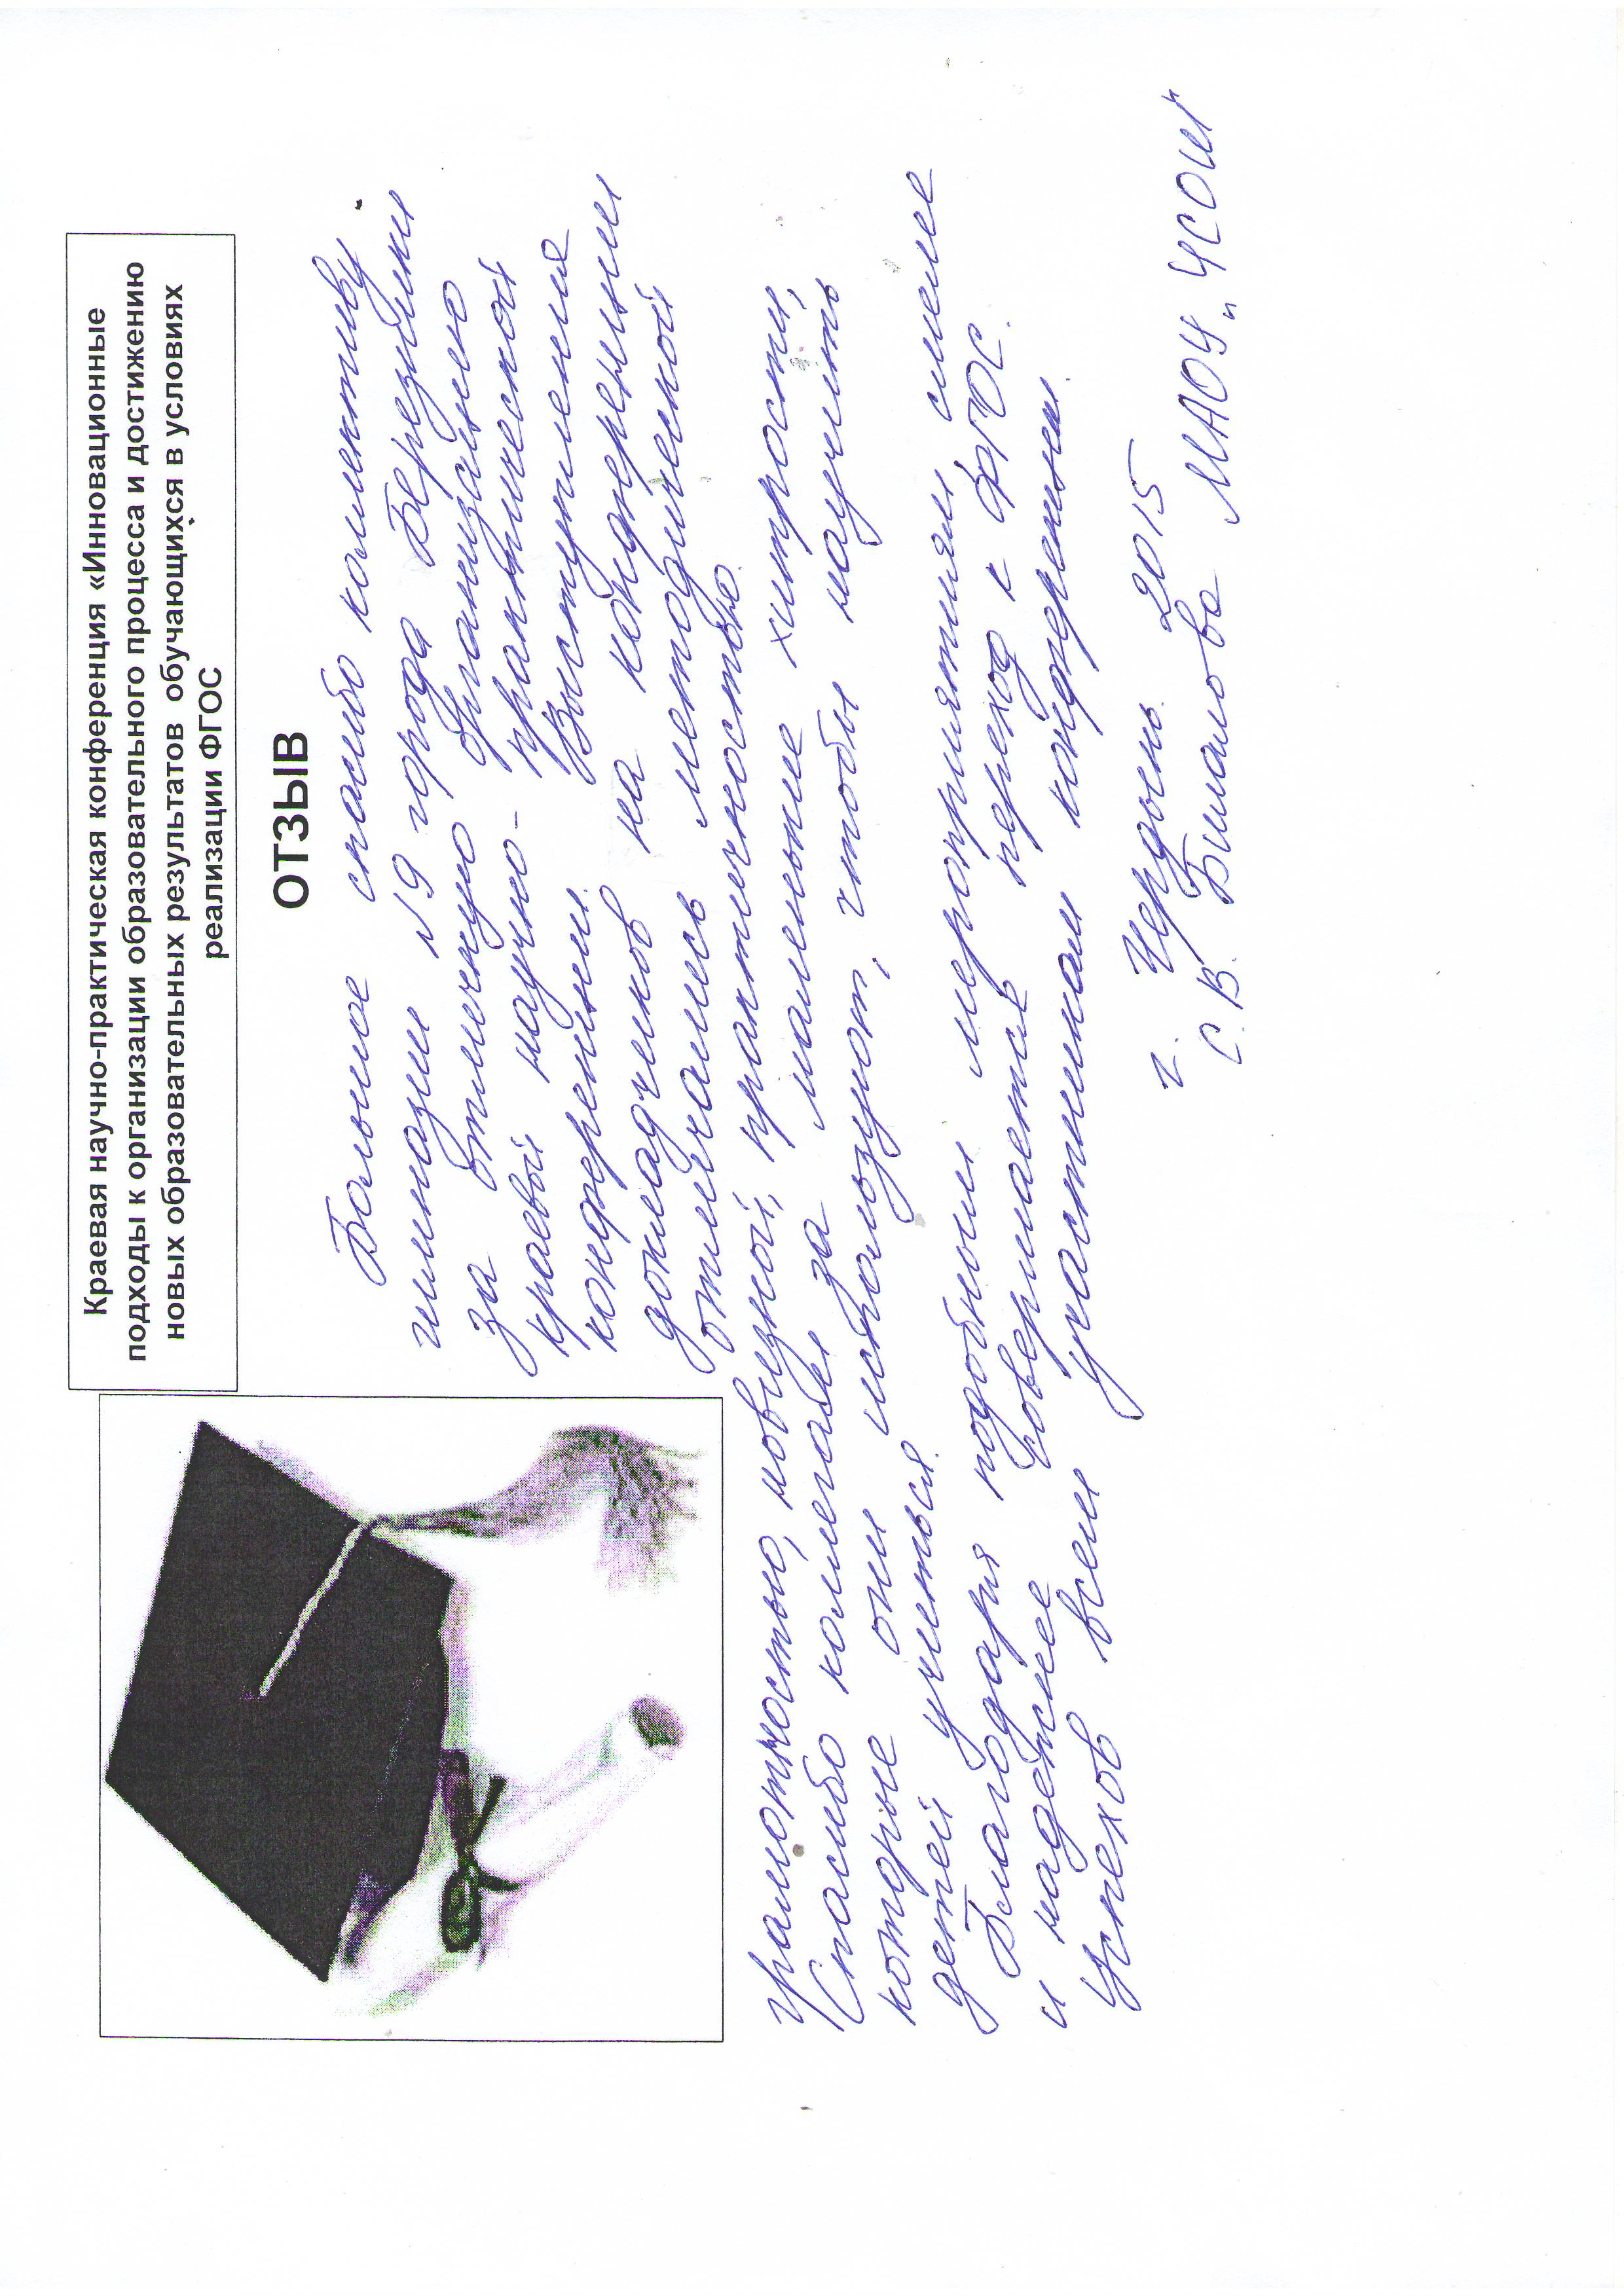 Краевая научно-практическая конференция «Инновационные
подходы к организации образовательного процесса и достижению
новых образовательных результатов обучающихся в условиях
реализации ФГОС
ОТЗЫВ
Большое спасибо коллективу
гимназии №9 города Березники
за отличную организацию
краевой научно-практической
конференции. Выступления
докладчиков на конференции
отличались методической
грамотностью, новизной, практичностью.
Спасибо коллегам за маленькие хитрости,
которые они используют, чтобы научить
детей учиться.
Благодаря подобным мероприятиям смелее
и надежнее совершается переход к ФГОС.
Успехов всем участникам конференции.
г. Чердынь 2015
С.В. Бималова МАОУ „ЧСОШ"